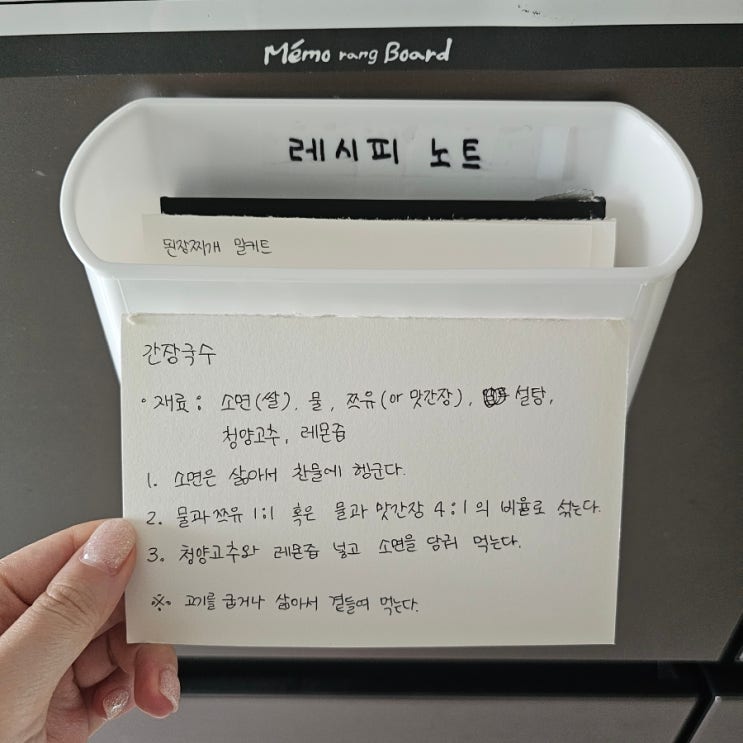 Mémo rang Board
레시피 노트
된장찌개 밀키트
간장국수
• 재료 : 소면(쌀), 물, 쯔유(or 맛간장), 설탕,
청양고추, 레몬즙
1. 소면은 삶아서 찬물에 헹군다.
2. 물과 쯔유 1:1 혹은 물과 맛간장 4:1의 비율로 섞는다.
3. 청양고추와 레몬즙 넣고 소면을 담궈 먹는다.
※ 고기를 굽거나 삶아서 곁들여 먹는다.